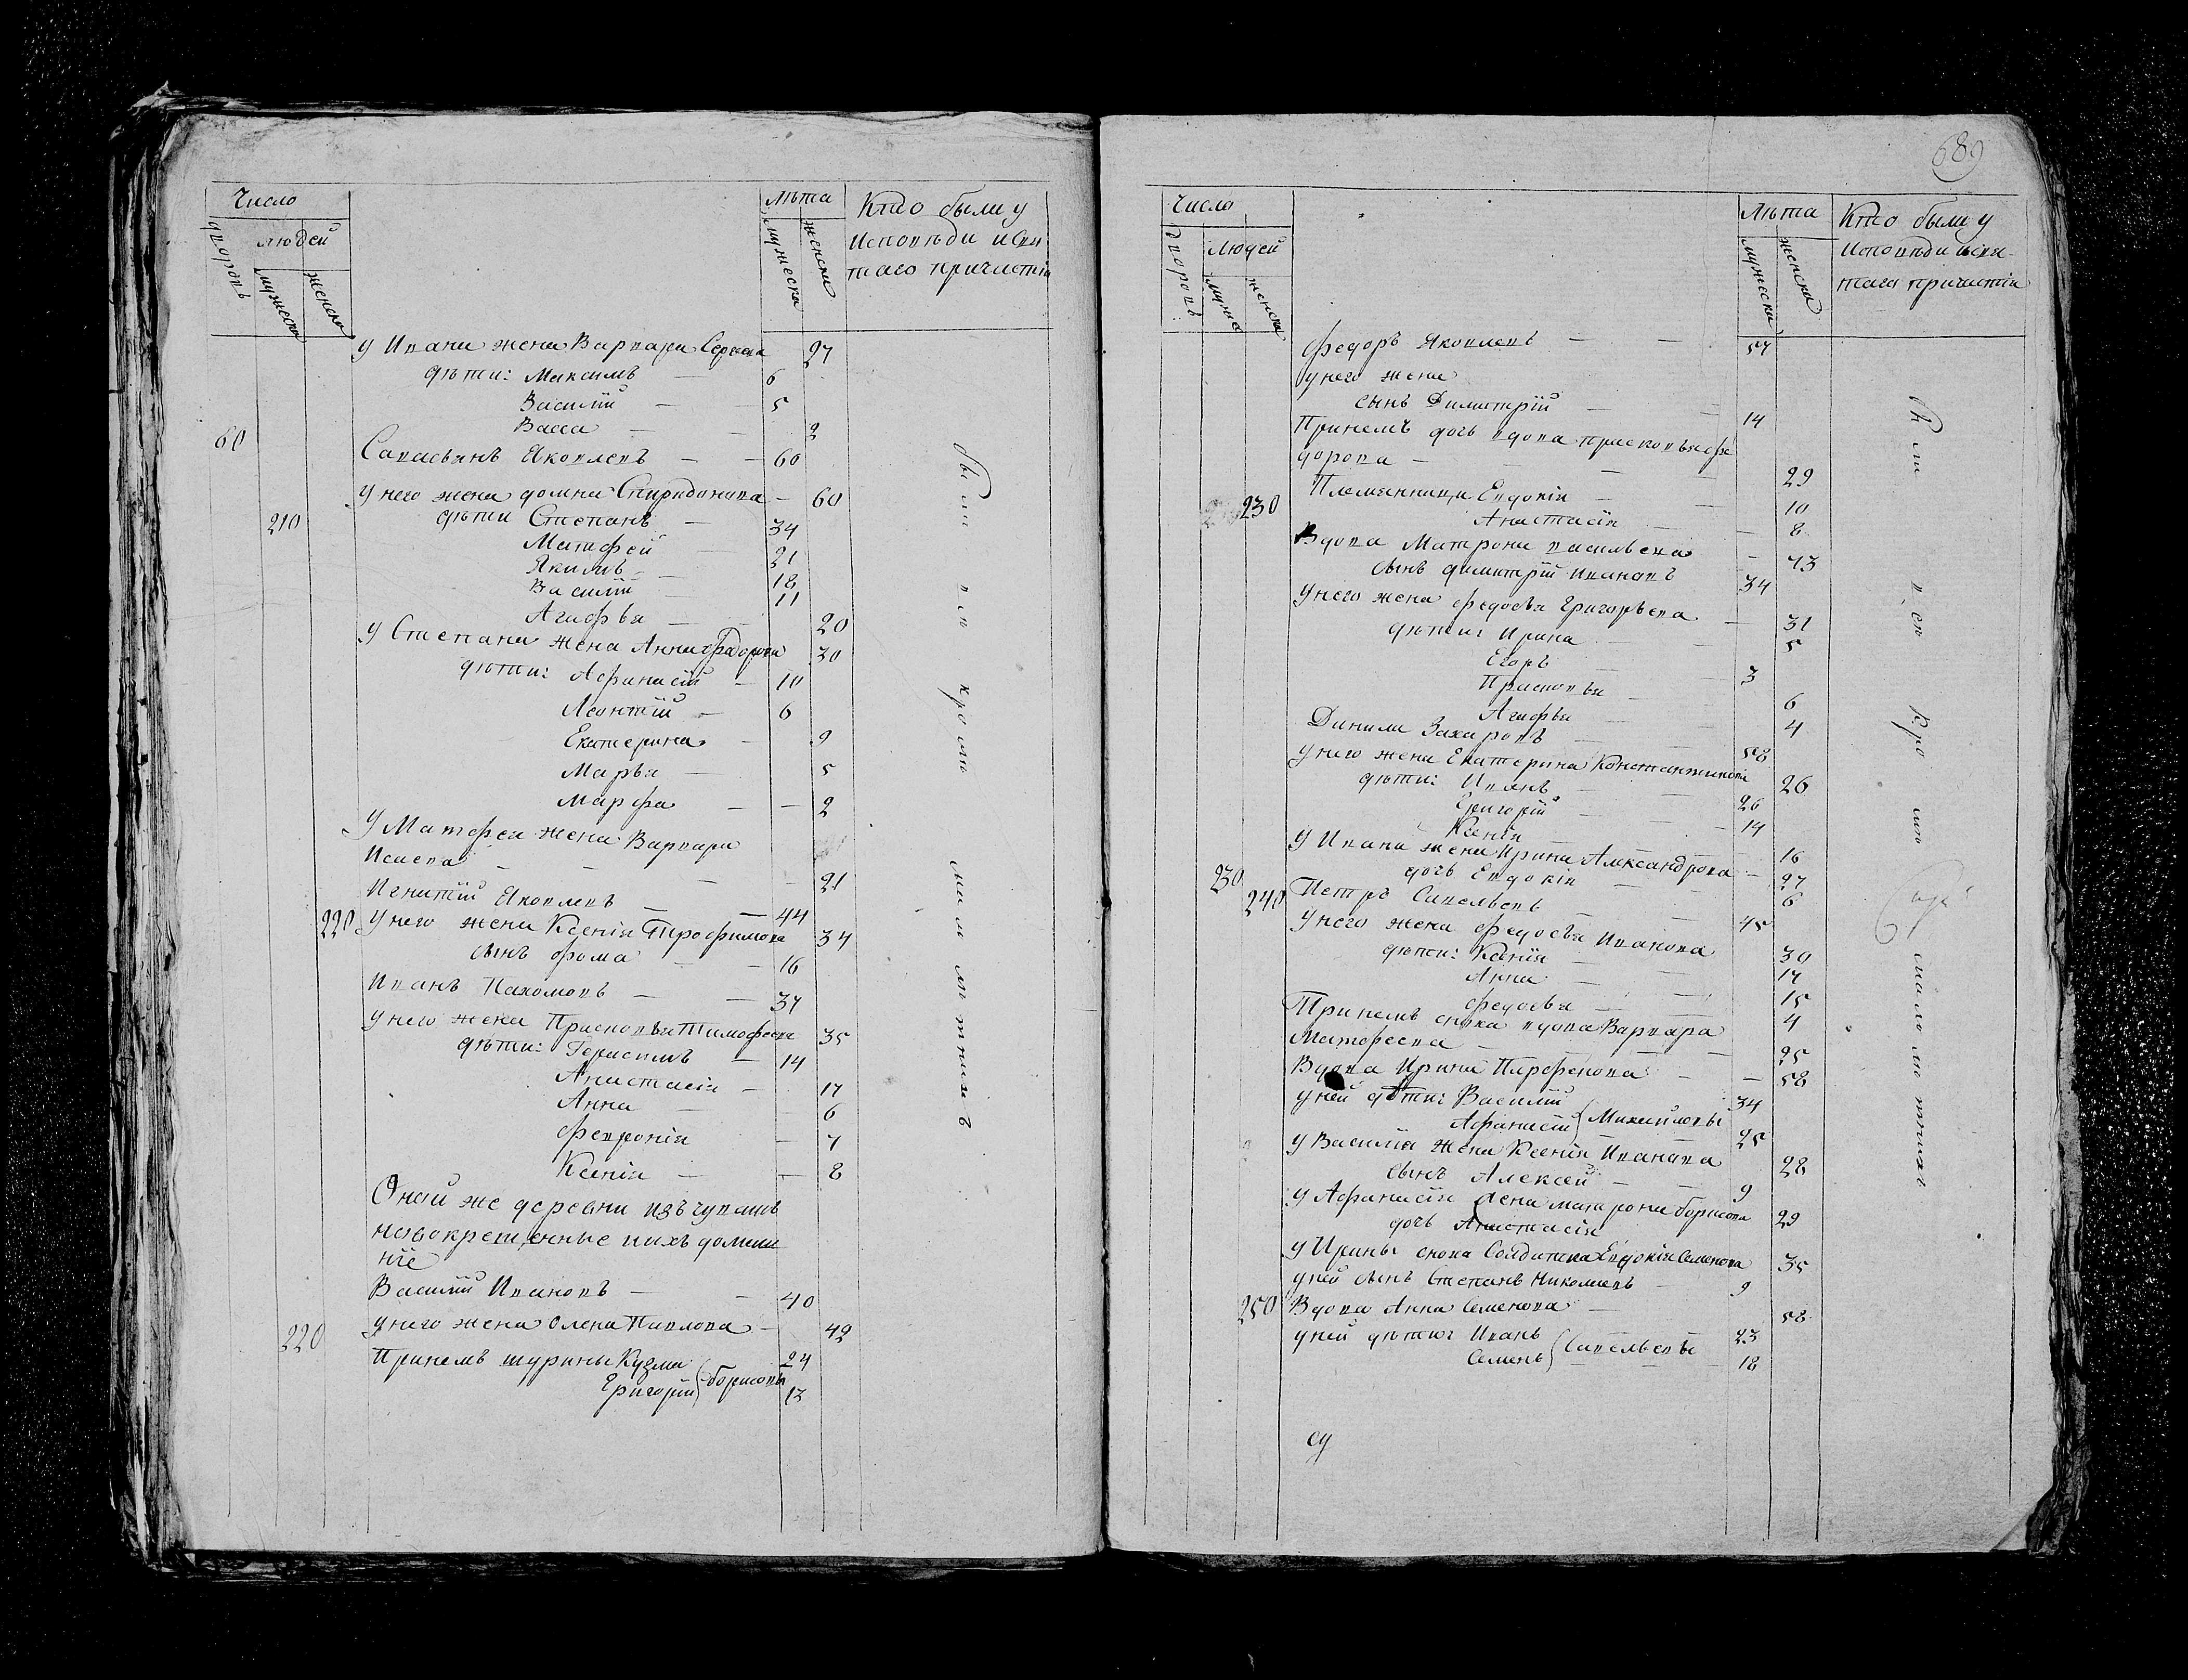 Число
Лѣта
Кто были у
дворовъ
людей
мужеска
женска
мужеска
женска
Исповѣди и свя
таго причастія
У Ивана жена Варвара Сергеева 27
дѣти: Максимъ — 6
Василій — 5
Васса — — 2
60
Савасьянъ Яковлевъ — — 60
У него жена домна Спиридонова — 60
210
дѣти Степанъ — 34
Матфей — 21
Якимъ — 18
Василій — 11
Агафья — — 20
У Степана жена Анна Федорова 30
дѣти: Афанасій — 10
Леонтій — 6
Екатерина — 9
Марья — 5
Марфа — — 2
У Матфея жена Варвара
Исаева — — — — 21
Игнатій Яковлевъ — — 44
220 У него жена Ксенія Трофимова 34
сынъ фома — — 16
Иванъ Пахомовъ — — 37
У него жена Прасковья Тимофеева 35
дѣти: Герасимъ — 14
Анастасія — 17
Анна — 6
Феврониія — 7
Ксенія — — 8
Оной же деревни изъ чувашъ
новокрещенные и ихъ домаш
ніе
Василій Ивановъ — — 40
У него жена Олена Павлова — 42
220
Приемъ шурины Кузма 24
Григорій 13
борисовы
были все кромѣ малолѣтнихъ
689
Число
Лѣта
Кто были у
дворовъ
Людей
мужес
женска
мужеска
женска
Исповѣди и свя-
таго причастія
Федоръ Яковлевъ — — 57
У него жена
сынъ Димитрій — — 14
Приемъ дочь вдова Прасковья Фе
дорова — — — 29
Племянницы Евдокія — — 10
230
Анастасія — — 8
Вдова Матрона васильева — 73
сынъ димитрій Ивановъ 34
У него жена федосья Григорьева — 31
дѣти: Ирина — — 5
Егоръ — — 3
Прасковья — 6
Агафья — — 4
Данила Захаровъ — — 58
У него жена Екатерина Константинова 26
дѣти: Иванъ — — 26
Григорій — — 14
Ксенія — 16
У Ивана жена Ирина Александрова — 27
дочь Евдокія — — 6
230
240 Петръ Савельевъ — — 45
У него жена федосья Иванова 30
дѣти: Ксенія — — 17
Анна — — 15
федосья — — 4
Приемъ сноха вдова Варвара
Матфеева — — — 25
Вдова Ирина Парфенова — — 58
У ней дѣти: Василій 34
Афанасій 25
Михайловы
У Василія жена Ксенія Иванова 28
сынъ Алексей — — 9
У Афанасія жена матрона борисова 29
дочь Анастасія
У Ирины сноха Солдатка Евдокія Семенова 35
У ней сынъ Степанъ Николаевъ — 9
250 Вдова Анна Семенова — 58
У ней дѣти: Иванъ 23
Семенъ 18
Савельевы
были все Кромѣ малолѣтнихъ
су